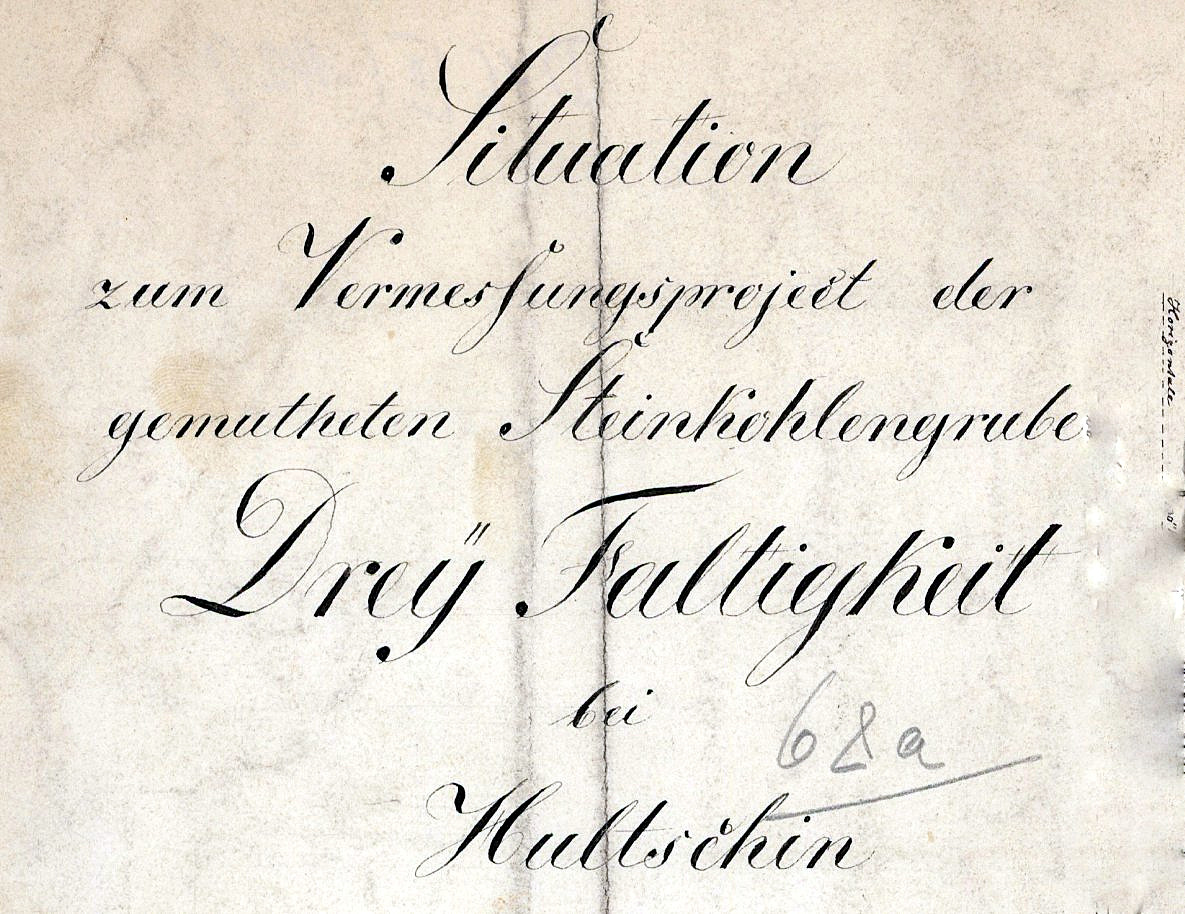 Situation
zum Vermessungsproject der
gemutheten Steinkohlengrube
Dreÿ Faltigkeit
bei
68a
Hultschin
Horizontale